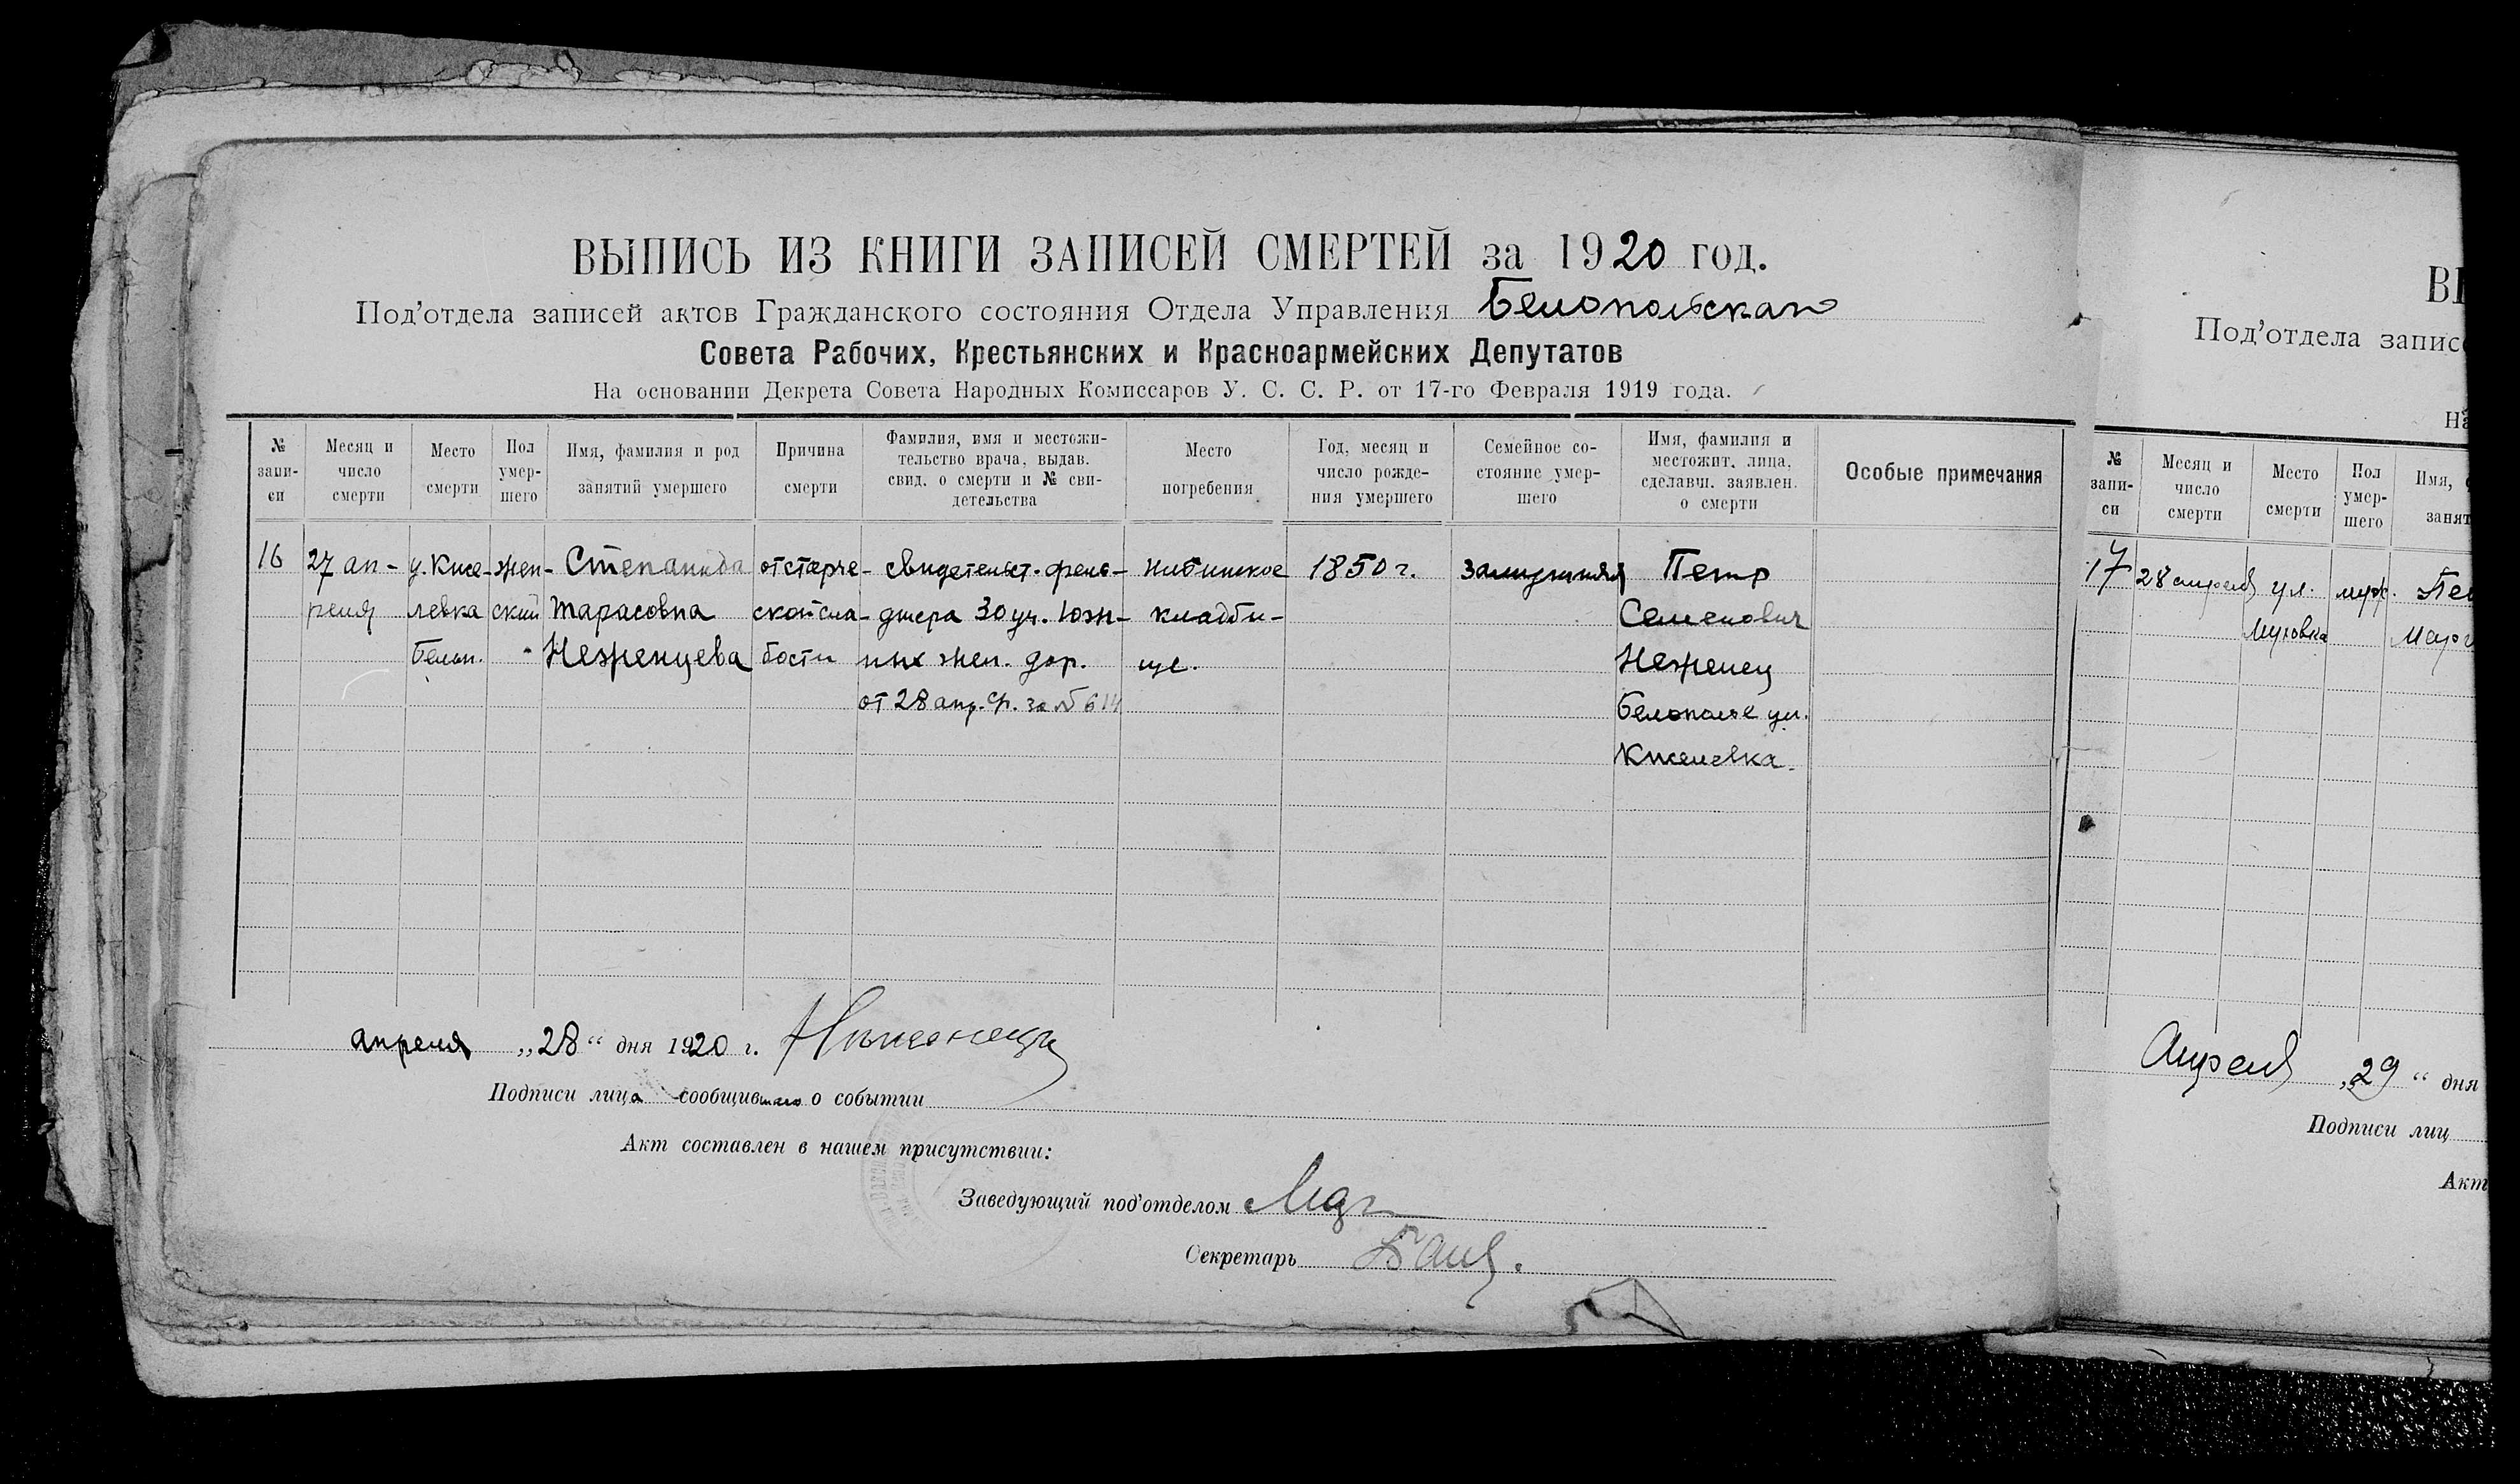 ВЫПИСЬ ИЗ КНИГИ ЗАПИСЕЙ СМЕРТЕЙ за 1920 год.
Под'отдела записей актов Гражданского состояния Отдела Управления Белопольскаго
Совета Рабочих, Крестьянских и Красноармейских Депутатов
На основании Декрета Совета Народных Комиссаров У. С. С. Р. от 17-го Февраля 1919 года.
№ запи-си
Месяц и число смерти
Место смерти
Пол умер-шего
Имя, фамилия и род занятий умершего
Причина смерти
Фамилия, имя и местожи-тельство врача, выдав. свид. о смерти и № сви-детельства
Место погребения
Год, месяц и число рожде-ния умершего
Семейное со-стояние умер-шего
Имя, фамилия и местожит. лица, сделавш. заявлен. о смерти
Особые примечания
16
27 ап-
реля
у. Кисе-
левка
Белоп.
жен-
ский
Степанида
Тарасовна
Неженцева
от старче-
ской сла-
бости
свидетельст. фель-
дшера 30 уч. Юж-
ных жел. дор.
от 28 апр. с/г. за № 614
кладби-
ще.
1850 г.
замужняя
Петр
Семенович
Неженец
Белополье ул.
Киселевка.
апреля „28“ дня 1920 г.
Подписи лица сообщившаго о событии
Акт составлен в нашем присутствии:
Заведующий под'отделом
Секретарь
ВЫ
Под'отдела записе
На
№ запи-си
Месяц и число смерти
Место смерти
Пол умер-шего
Имя,
занят
17
28 апреля
ул.
муж.
Апреля „29“ дня
Подписи лиц
Акт